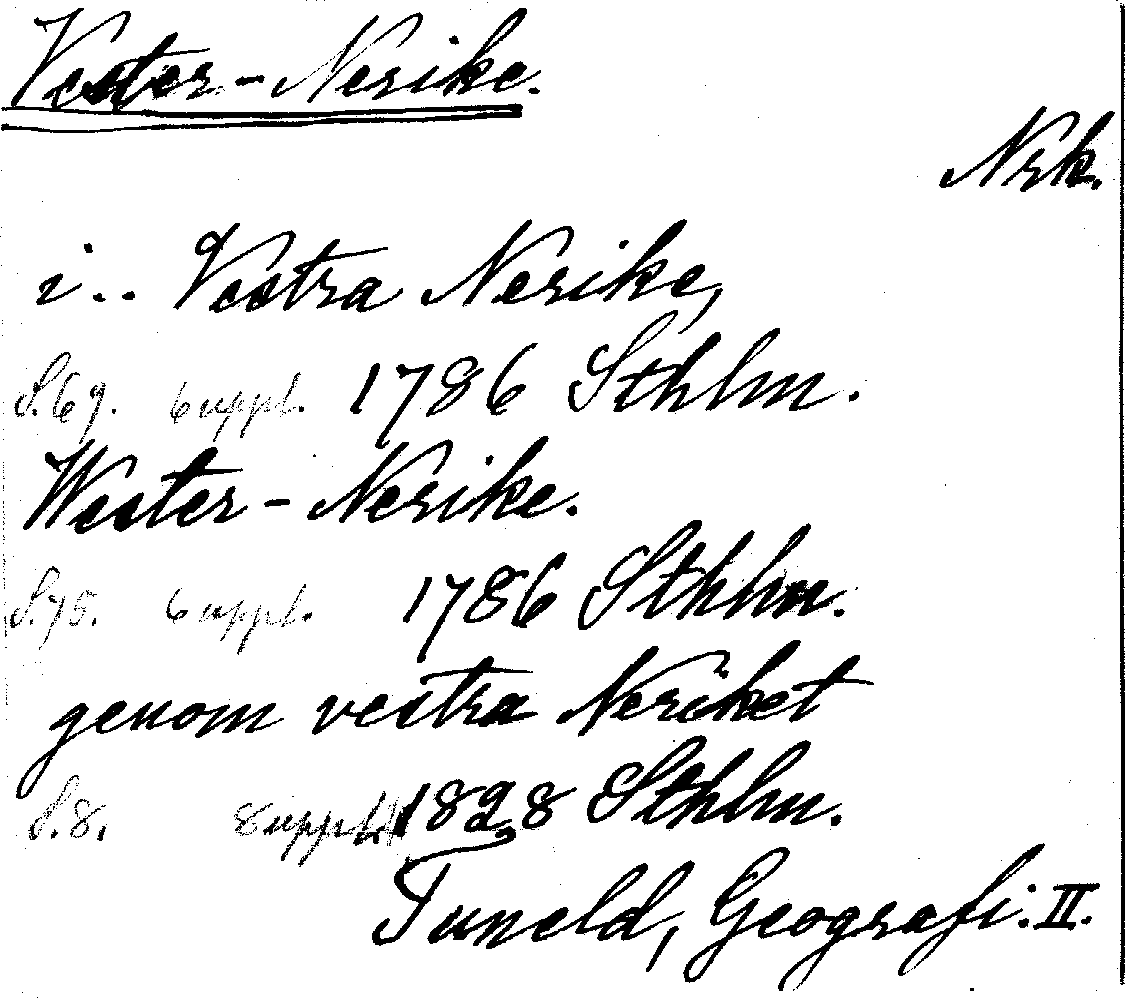 Vester-Nerike.
Nrk.
i.. Vestra Nerike,
S.69. 6 uppl. 1786 Sthlm.
Wester-Nerike.
S.75. 6 uppl. 1786 Sthlm.
genom vestra Neriket
S.8. 8 uppl. 1828 Sthlm.
Tuneld, Geografi. II.